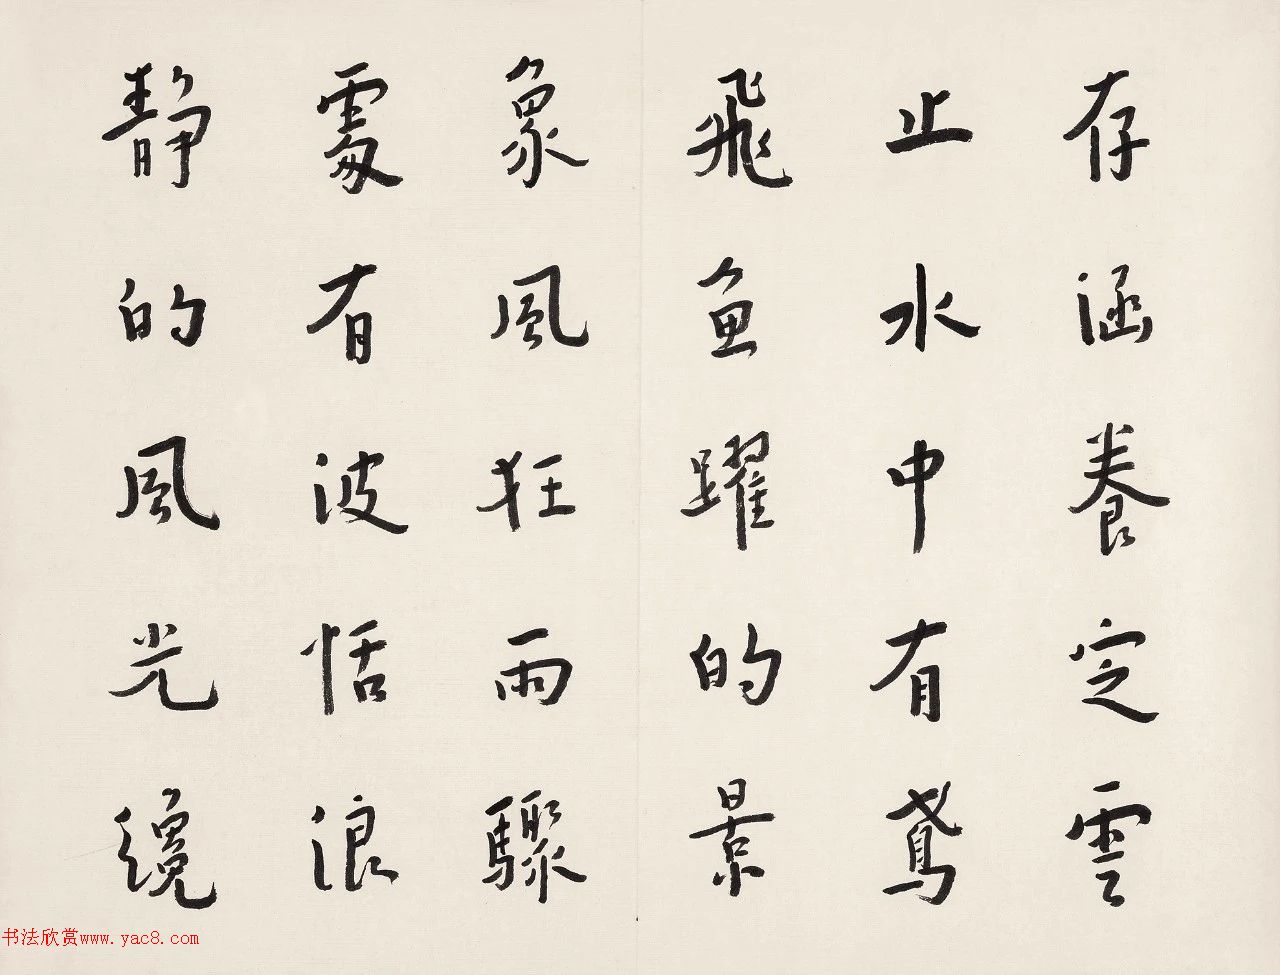 存涵養定雲
止水中有鳶
飛魚躍的景
象風狂雨驟
處有波恬浪
靜的風光纔
书法欣赏www.yac8.com